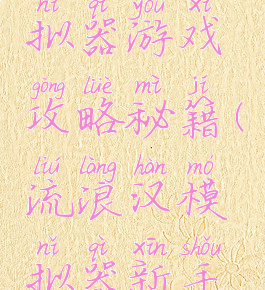 nǐ qì yóu xì
拟器游戏
gōng lüè mì jí
攻略秘籍(
liú làng hàn mó
流浪汉模
nǐ qì xīn shǒu
拟器新手